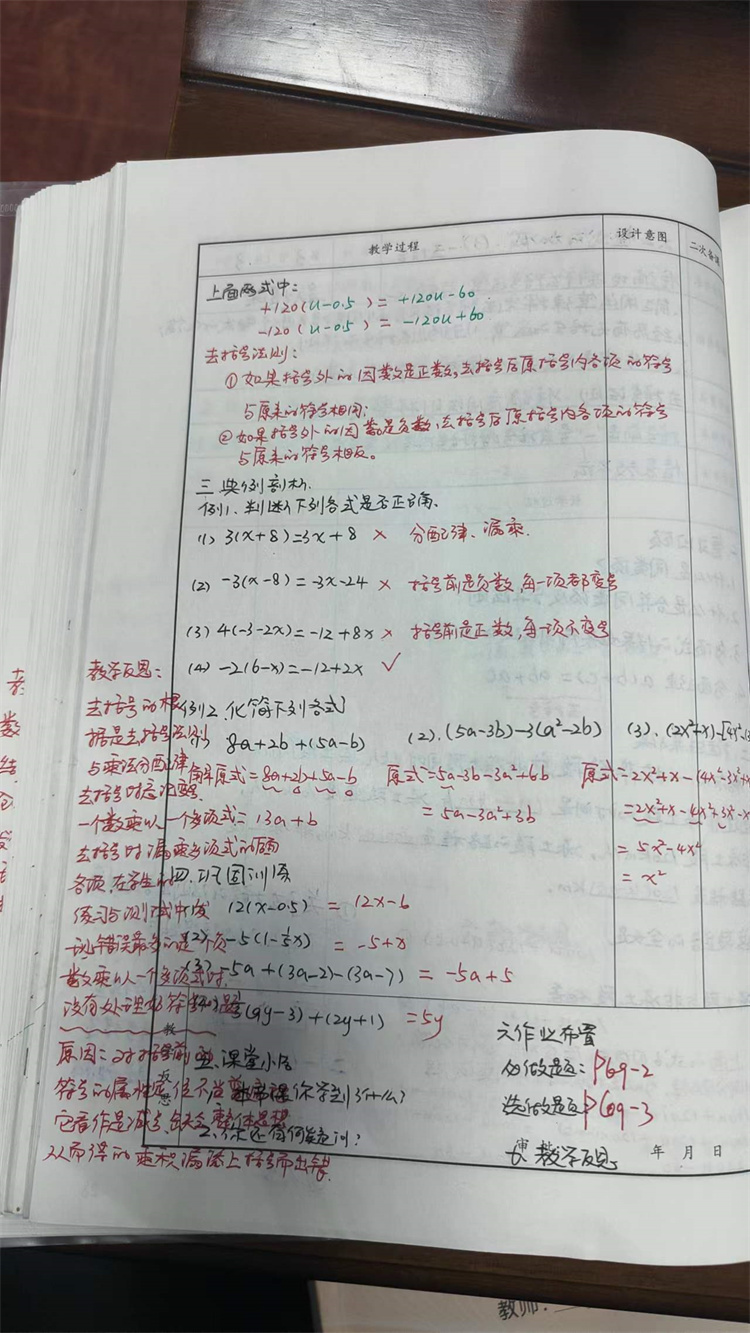 教学过程
设计意图
二次备课
上面两式中:
+120(u-0.5) = +120u-60
-120(u-0.5) = -120u+60
去括号法则:
①如果括号外的因数是正数,去括号后原括号内各项的符号
与原来的符号相同;
②如果括号外的因数是负数,去括号后原括号内各项的符号
与原来的符号相反。
三 典例剖析.
例1、判断下列各式是否正确.
(1) 3(x+8)=3x+8 × 分配律、漏乘.
(2) -3(x-8)=-3x-24 × 括号前是负数,每一项都变号
(3) 4(-3-2x)=-12+8x × 括号前是正数,每一项不变号
(4) -2(6-x)=-12+2x √
例2、化简下列各式
8a+2b+(5a-b)
(2).(5a-3b)-3(a²-2b)
(3).(2x²+x)-[4x²-(3
解原式=8a+2b+5a-b
=13a+b
原式=5a-3b-3a²+6b
=5a-3a²+3b
原式=2x²+x-(4x²-3x²+x
=2x²+x-4x²+3x²-x
=5x²-4x²
=x²
四.巩固训练
12(x-0.5) = 12x-6
(2) -5(1-⅕x) = -5+x
(3) -5a+(3a-2)-(3a-7) = -5a+5
(9y-3)+(2y+1) =5y
五.课堂小结
你学到了什么?
2、你还有何疑问?
六 作业布置
必做题:P69-2
选做题:P69-3
七 教学反思
年 月 日
教学反思:
去括号的根
据是去括号法则
与乘法分配律
去括号时应注意
一个数乘以一个多项式
去括号时漏乘多项式的
各项,在学生的
练习与测试中发
现错误最多的是一个负
数乘以一个多项式时,
没有处理好符号问题
原因:对括号前
符号的属性
它看作是减号,
从而得的乘积漏添上括号而出错.
教师: